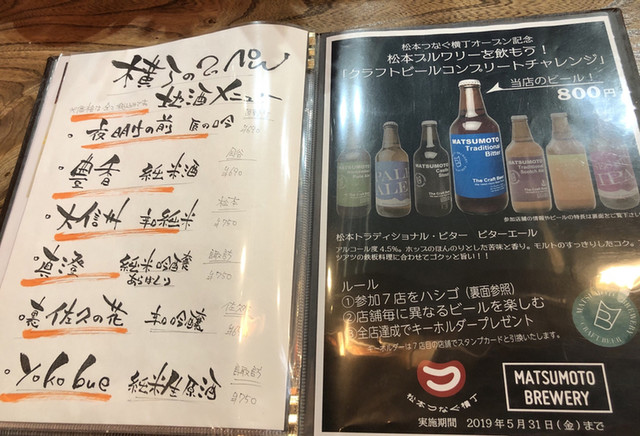 地酒メニュー
・夜明け前 辰の吟
・豊香 純米酒
・大信州 辛口純米
松本
¥750
・真澄 純米吟醸
あらばしり
¥750
・裏佐久の花 辛口吟醸
佐久
・Yokobue 純米吟醸
¥750
松本つなぐ横丁オープン記念
松本ブルワリーを飲もう!
「クラフトビールコンプリートチャレンジ」
当店のビール!
800円
MATSUMOTO
Traditional
Bitter
The Craft Beer
PALE
ALE
MATSUMOTO
Castle
Stout
The Craft Beer
MATSUMOTO
Traditional
IPA
参加店舗の情報やビールの特長は裏面をご覧下さい
松本トラディショナル・ビター ビターエール
アルコール度4.5%。ホップスのほんのりとした苦味と香り。モルトのすっきりしたコク。
ツアツの鉄板料理に合わせてゴクッと旨い!!!
ルール
①参加7店をハシゴ(裏面参照)
②店舗毎に異なるビールを楽しむ
③全店達成でキーホルダープレゼント
キーホルダーは7店目の店舗でスタンプカードと引換いたします。
MATSUMOTO BREWERY
CRAFT BEER
松本つなぐ横丁
MATSUMOTO
BREWERY
実施期間 2019年5月31日(金)まで